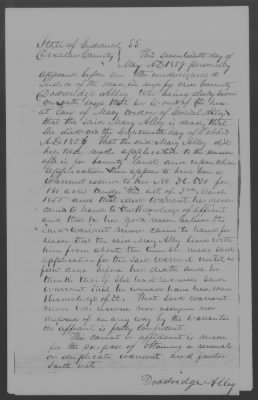 State of Indiana SS.
Decatur County This Seventeenth day of
May A.D. 1859 personally
appeared before me the undersigned a
of the peace in and for said County
Doddridge Alley who being duly sworn
on oath says that he is one of the heirs
at law of Mary widow of Alley
that the said Mary Alley is dead, that
she died on the day of
A.D. 1856 That the said Mary Alley did
made application to the pension
office for bounty land and upon that
application there appears to have been a
warrant issued to her No 26,031 for
160 acres under the act of 3rd March
1855 and that said warrant has never
came to hand to the knowledge of affiant
and that he has good reason to believe the
said warrant never came to hand for
reason that the said Mary Alley lived with
him from about the time she made said
application for the said warrant until a
few days before her death and he
thinks that if she had received said
warrant that he would have had some
knowledge of it; That said warrant
never was nor assigned nor
disposed of in any way by the warrantee
as affiant is fully confident.
The above affidavit is made
for the purpose of obtaining a
or duplicate warrant and further
saith not.
Doddridge Alley